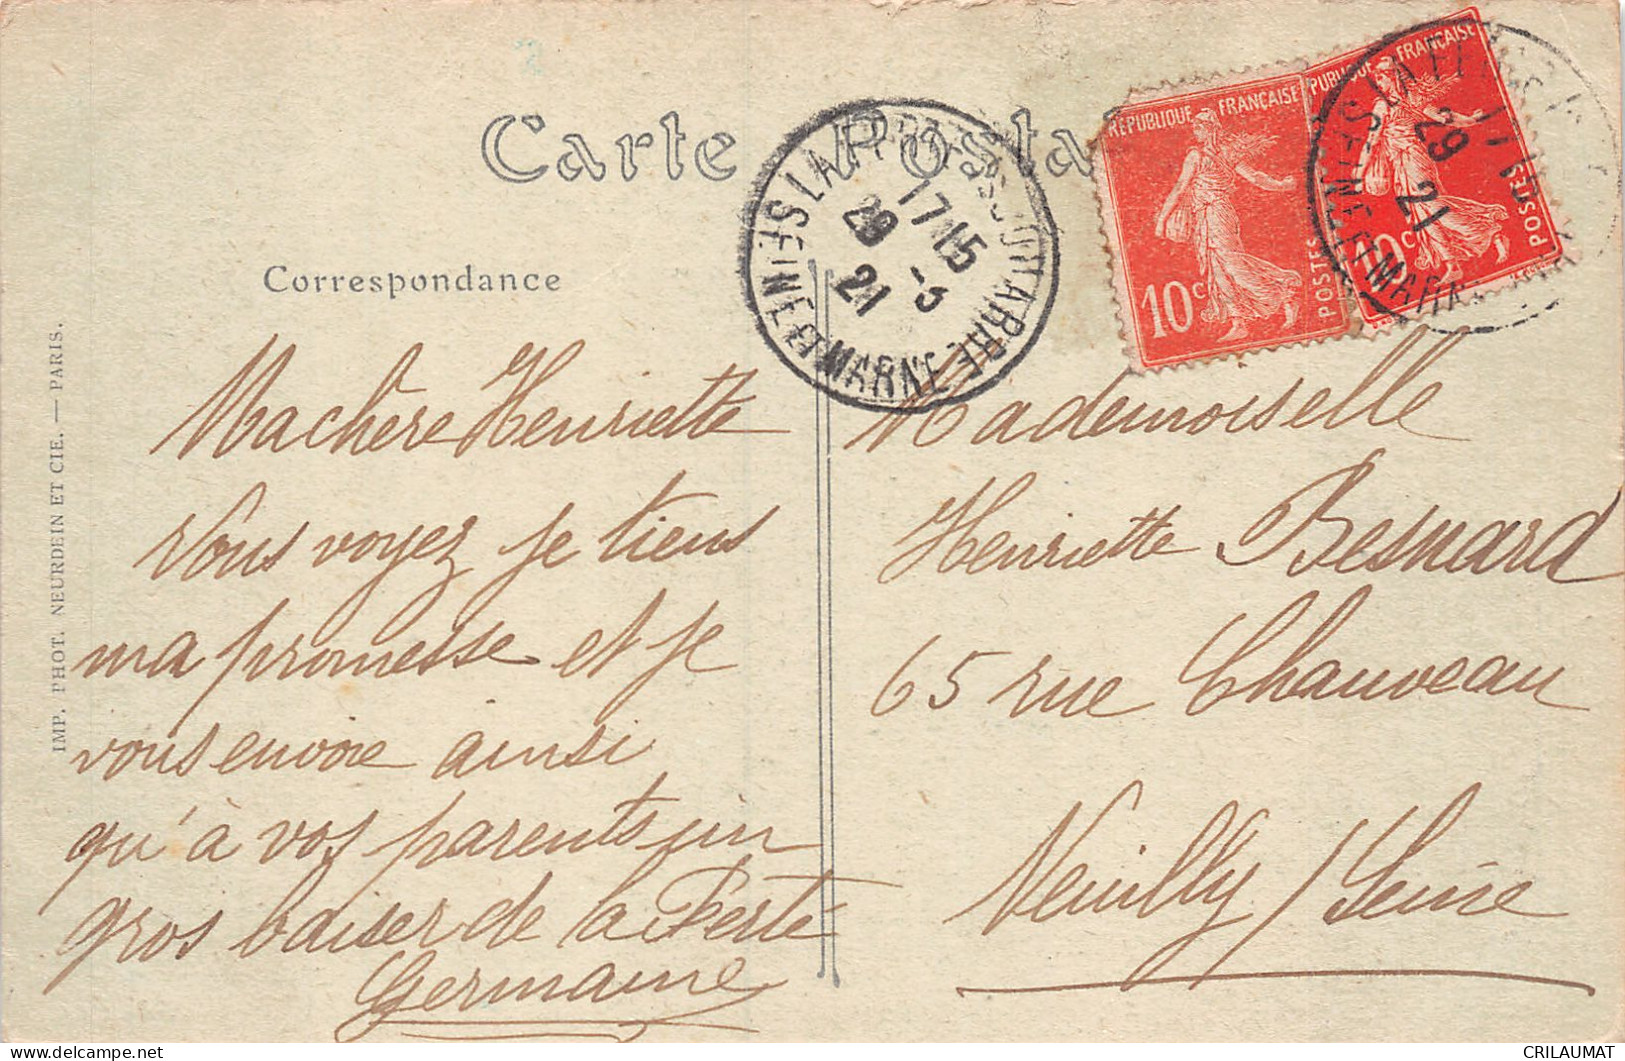 Carte Posta
Correspondance
Ma chère Henriette
Vous voyez je tiens
ma promesse et je
vous envoie ainsi
qu'à vos parents un
gros baiser de la Ferté
Germaine
IMP. PHOT. NEURDEIN ET CIE. — PARIS.
LA FERTÉ-SOUS-JOUARRE
17 15
29 -5
21
SEINE ET MARNE
RÉPUBLIQUE FRANÇAISE
10c
POSTES
RÉPUBLIQUE FRANÇAISE
10c
POSTES
29
21
SEINE ET MARNE
Mademoiselle
Henriette Besnard
65 rue Chauveau
Neuilly / Seine
CRILAUMAT